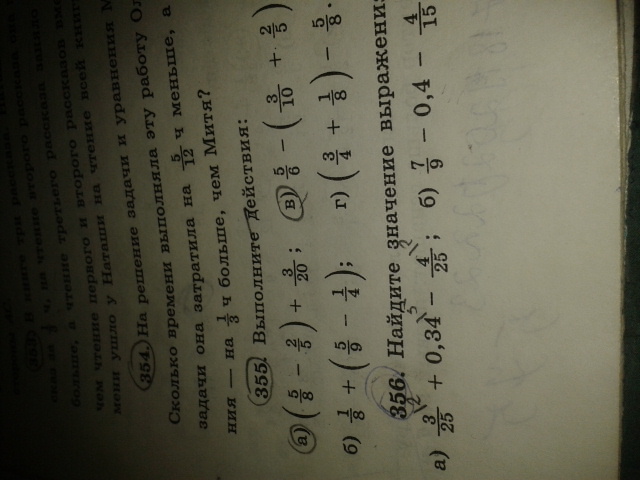 В книге три рассказа.
ч, на чтение второго рассказа
больше, а чтение третьего рассказа
чем чтение первого и второго рассказов
мени ушло у Наташи на чтение всей книги
354. На решение задачи и уравнения
Сколько времени выполняла эту работу
задачи она затратила на 5/12 ч меньше, а
ния — на 1/3 ч больше, чем Митя?
355. Выполните действия:
а) (5/8 − 2/5) + 3/20; в) 5/6 − (3/10 + 2/5)
б) 1/8 + (5/9 − 1/4); г) (3/4 + 1/8) − 5/8.
356. Найдите значение выражения
а) 3/25 + 0,34 − 4/25; б) 7/9 − 0,4 − 4/15